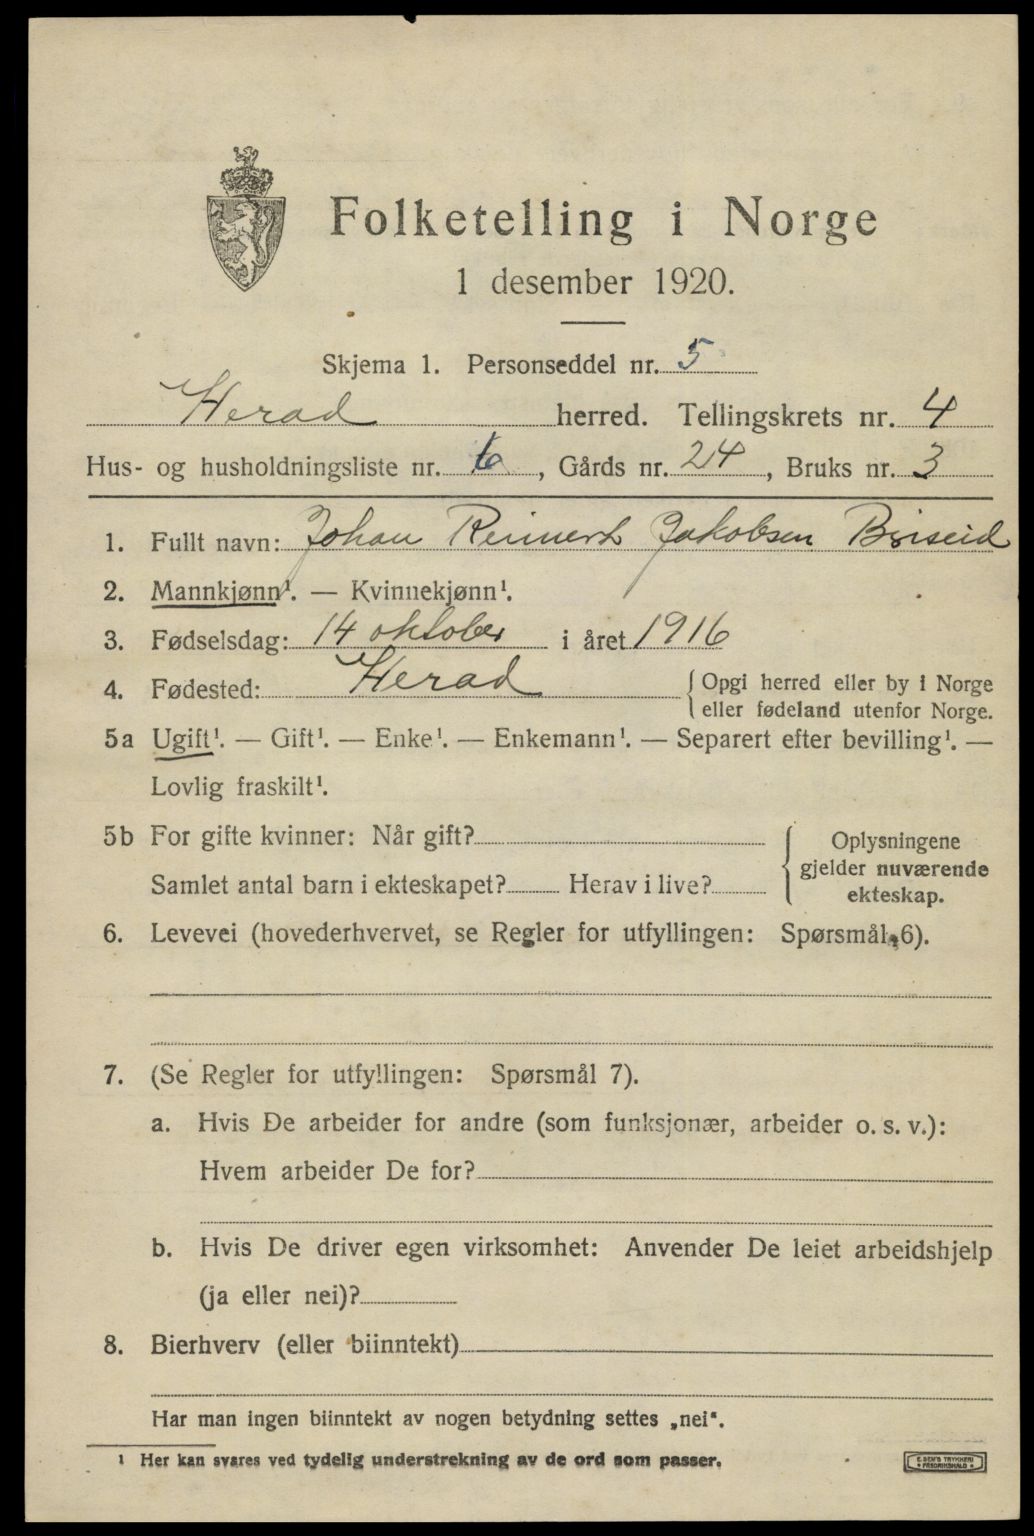 Folketelling i Norge
1 desember 1920.
Skjema 1. Personseddel nr. 5
Herad herred. Tellingskrets nr. 4
Hus- og husholdningsliste nr. 6, Gårds nr. 24, Bruks nr. 3
1. Fullt navn: Johan Reinert Jakobsen Briseid
2. Mannkjønn¹. — Kvinnekjønn¹.
3. Fødselsdag: 14 oktober i året 1916
4. Fødested: Herad { Opgi herred eller by i Norge
eller fødeland utenfor Norge.
5a Ugift¹. — Gift¹. — Enke¹. — Enkemann¹. — Separert efter bevilling¹. —
Lovlig fraskilt¹.
5b For gifte kvinner: Når gift? { Oplysningene
gjelder nuværende
Samlet antal barn i ekteskapet? Herav i live? ekteskap.
6. Levevei (hovederhvervet, se Regler for utfyllingen: Spørsmål 6).
7. (Se Regler for utfyllingen: Spørsmål 7).
a. Hvis De arbeider for andre (som funksjonær, arbeider o. s. v.):
Hvem arbeider De for?
b. Hvis De driver egen virksomhet: Anvender De leiet arbeidshjelp
(ja eller nei)?
8. Bierhverv (eller biinntekt)
Har man ingen biinntekt av nogen betydning settes „nei“.
¹ Her kan svares ved tydelig understrekning av de ord som passer.
E. SEM'S TRYKKERI
FREDRIKSHALD